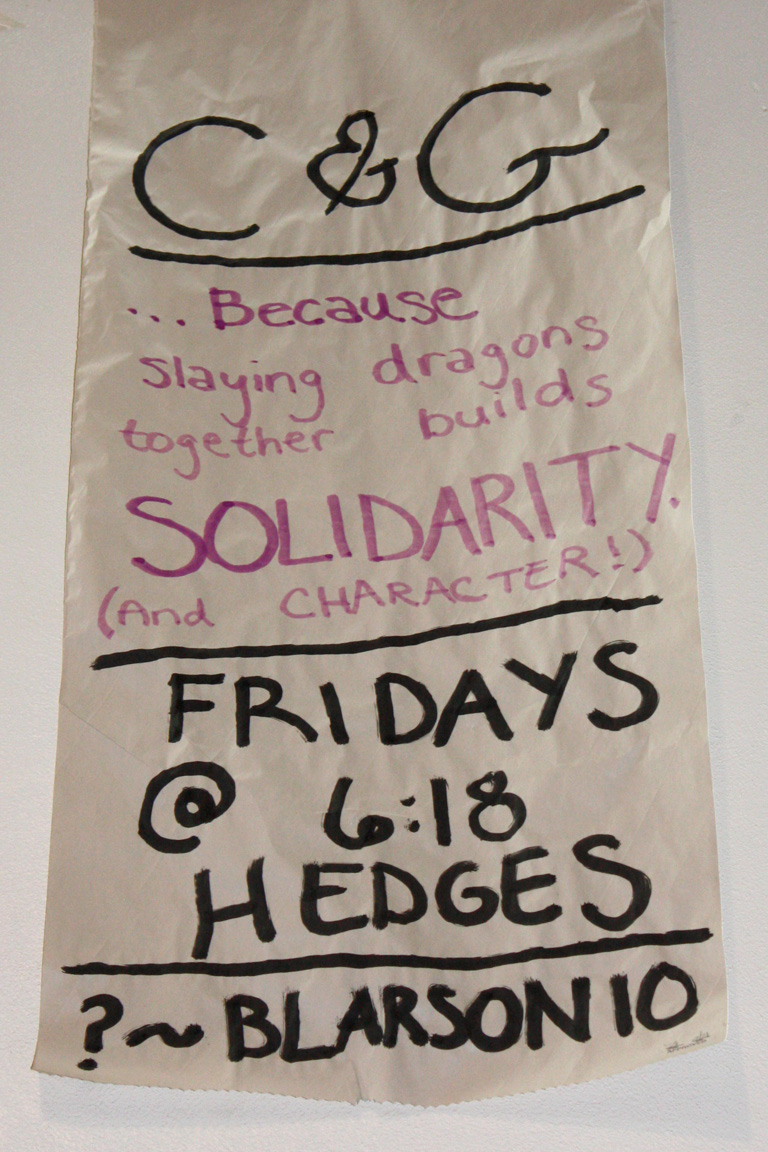 C & G
...Because
slaying dragons
together builds
SOLIDARITY.
(And CHARACTER!)
FRIDAYS
@ 6:18
HEDGES
? ~ BLARSON10